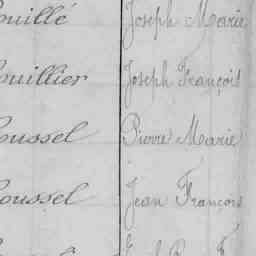 ouillé Joseph Marie
ouillier Joseph François
oussel Pierre Marie
oussel Jean François